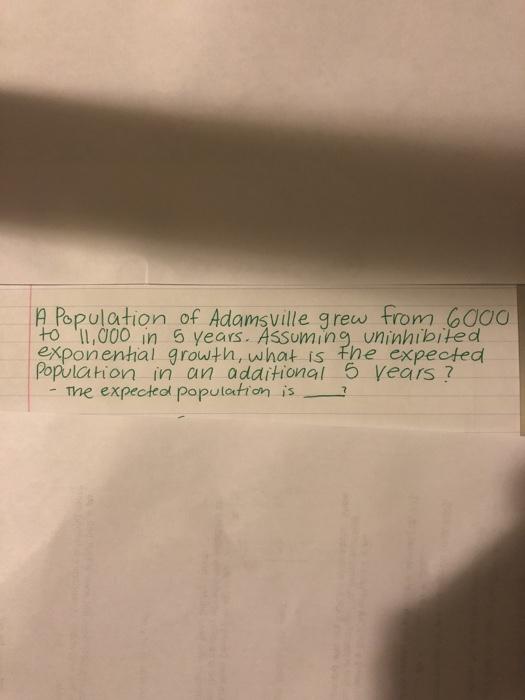 A Population of Adamsville grew from 6000
to 11,000 in 5 years. Assuming uninhibited
exponential growth, what is the expected
Population in an additional 5 years?
- The expected population is ___?